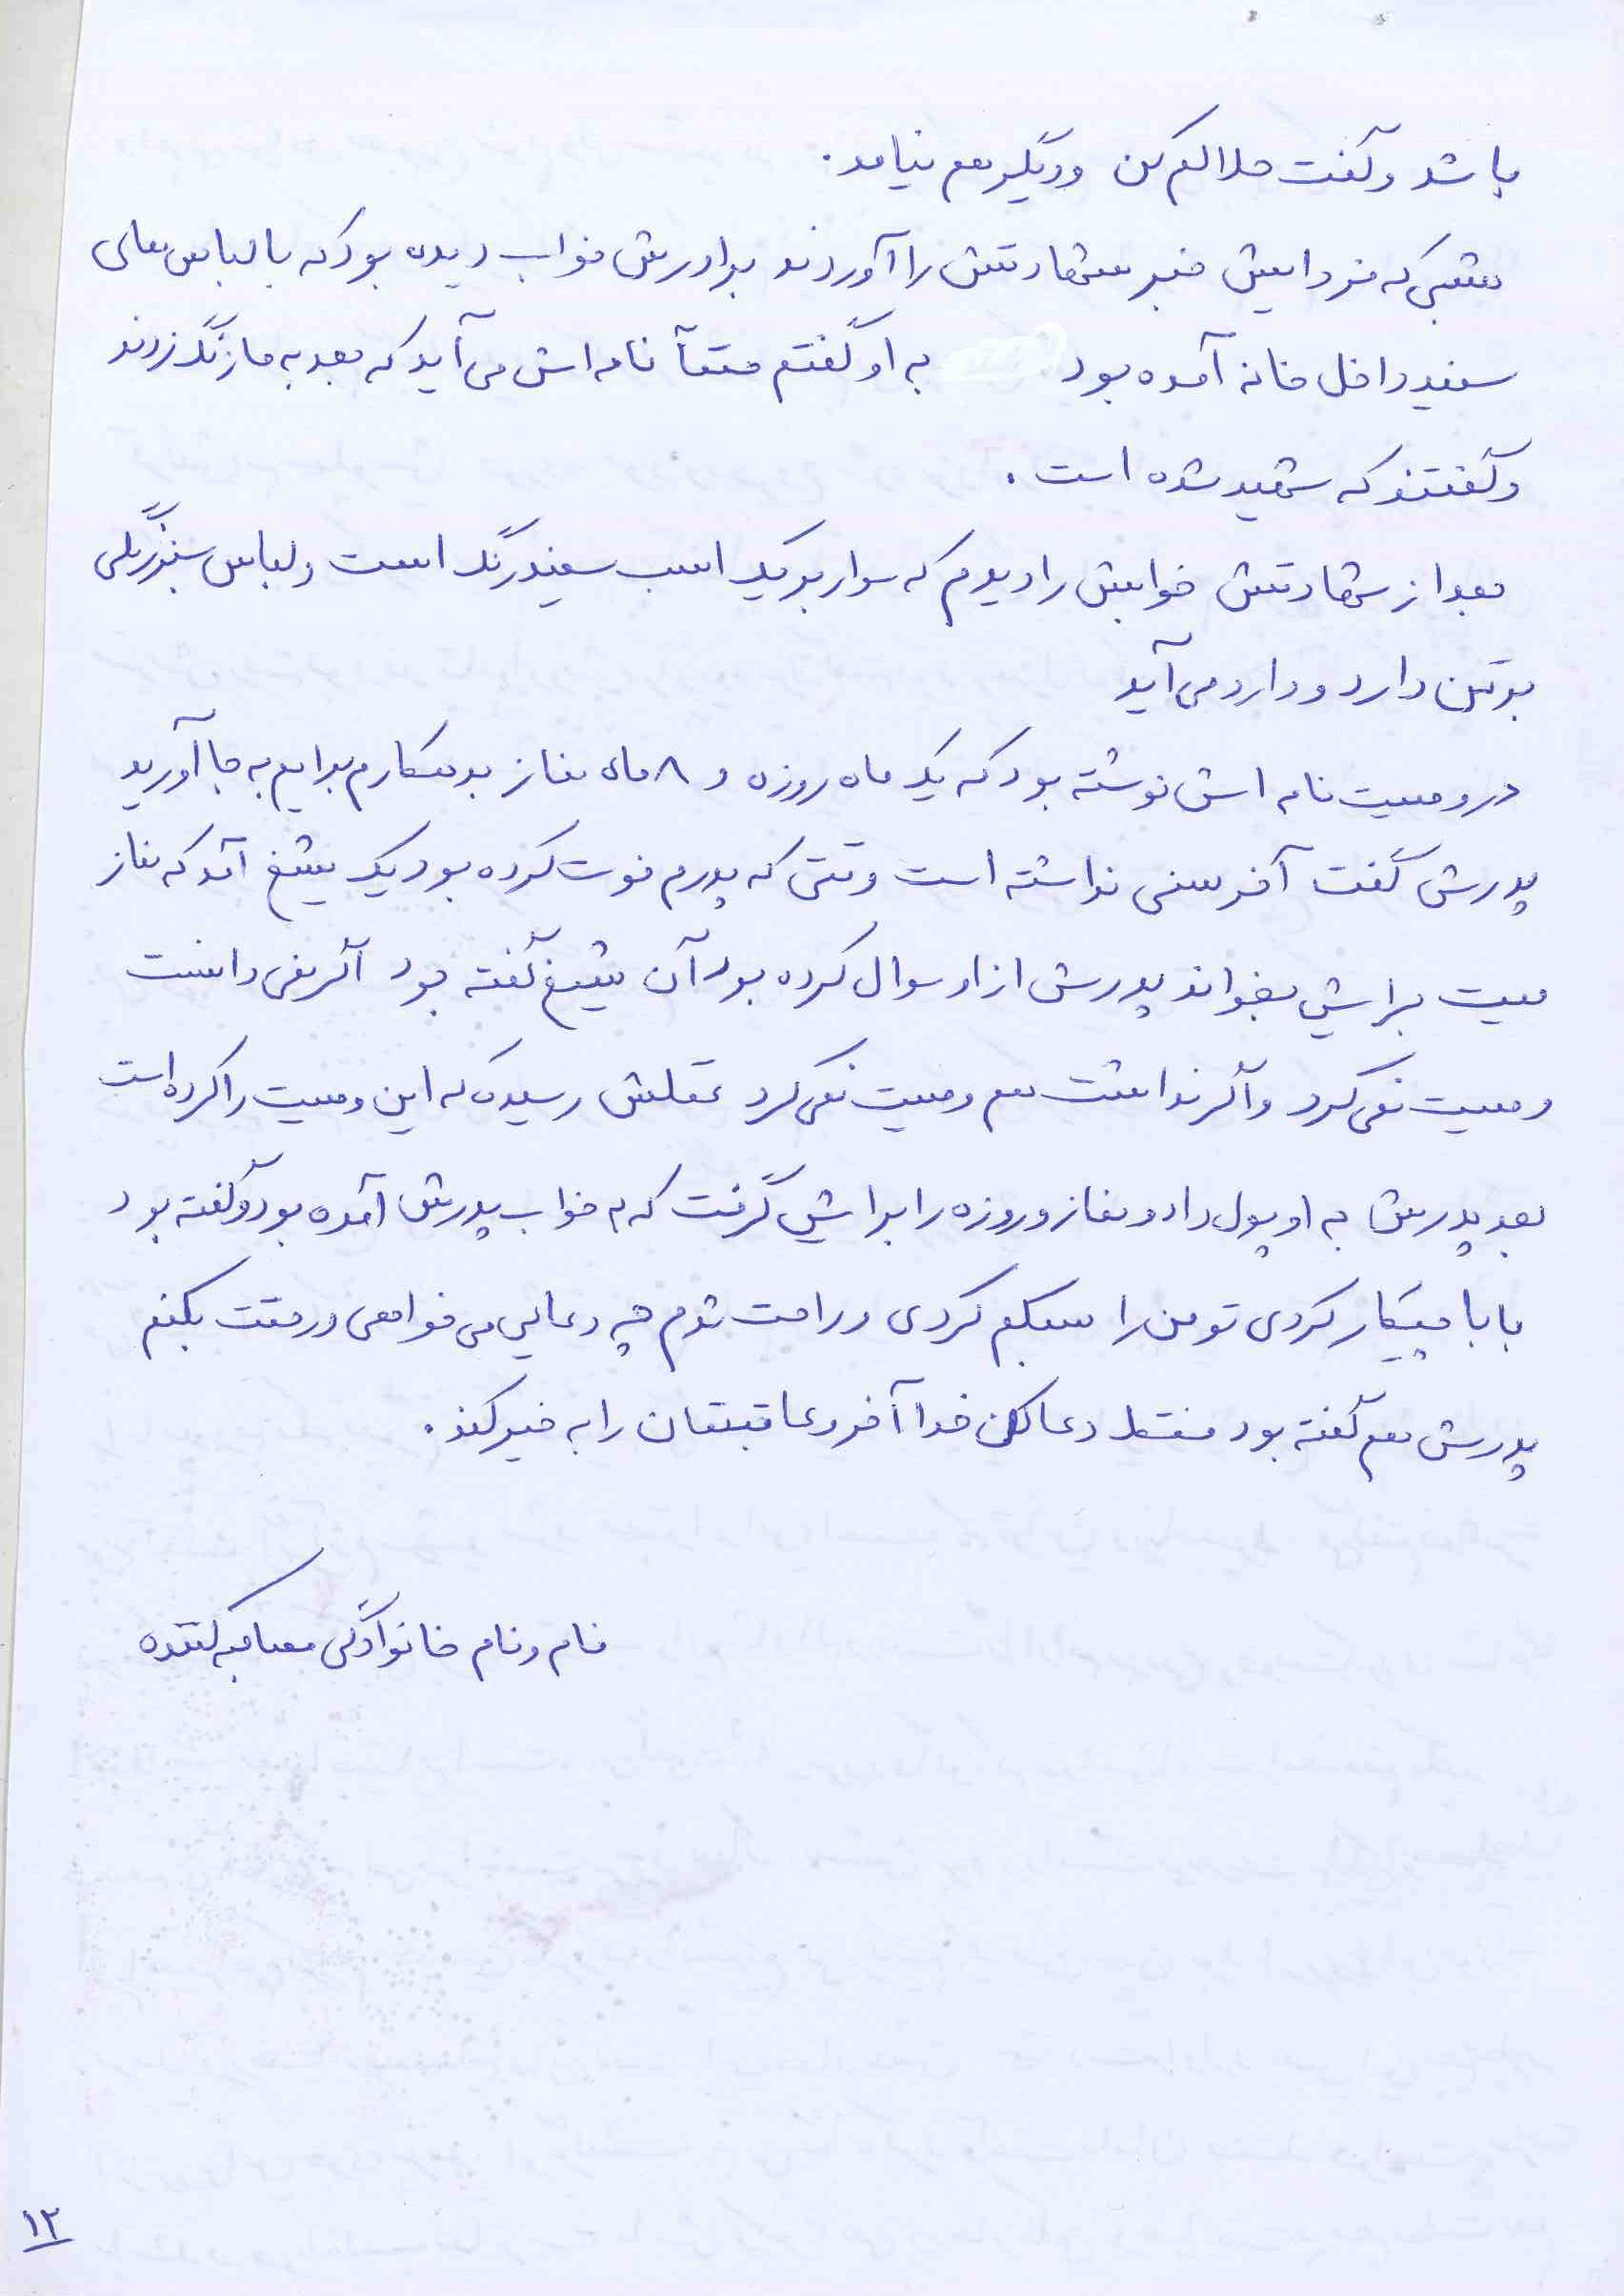 باشد و گفت حلالم کن و دیگر هم نیامد.
شبی که فردایش خبر شهادتش را آوردند برادرش خواب دیده بود که با لباس های
سفید داخل خانه آمده بود به او گفتم حتماً نامه اش می آید که بعد به ما زنگ زدند
و گفتند که شهید شده است.
بعد از شهادتش خوابش را دیدم که سوار بر یک اسب سفید رنگ است و لباس سبز رنگی
بر تن دارد و دارد می آید
در وصیت نامه اش نوشته بود که یک ماه روزه و ۸ ماه نماز بدهکارم برایم به جا آورید
پدرش گفت آخر سنی نداشته است وقتی که پدرم فوت کرده بود یک شیخ آمد که نماز
میت برایش بخواند پدرش از او سوال کرده بود آن شیخ گفته بود اگر نمی دانست
وصیت نمی کرد و اگر نداشت هم وصیت نمی کرد عقلش رسیده که این وصیت را کرده است
بعد پدرش به او پول داد و نماز و روزه را برایش گرفت که به خواب پدرش آمده بود و گفته بود
بابا چیکار کردی تو من را سبکم کردی و راحت شدم چه دعایی می خواهی در حقت بکنم
پدرش هم گفته بود فقط دعا کن خدا آخر و عاقبتمان را به خیر کند.
نام و نام خانوادگی مصاحبه کننده
۱۲